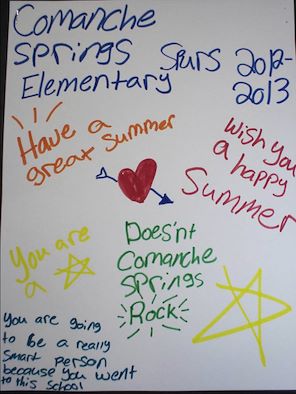 Comanche
Springs Spurs 2012-
Elementary 2013
Have a
great summer
Wish you
a happy
Summer
You are
a
Does'nt
Comanche
Springs
Rock
You are going
to be a really
smart person
because you went
to this school